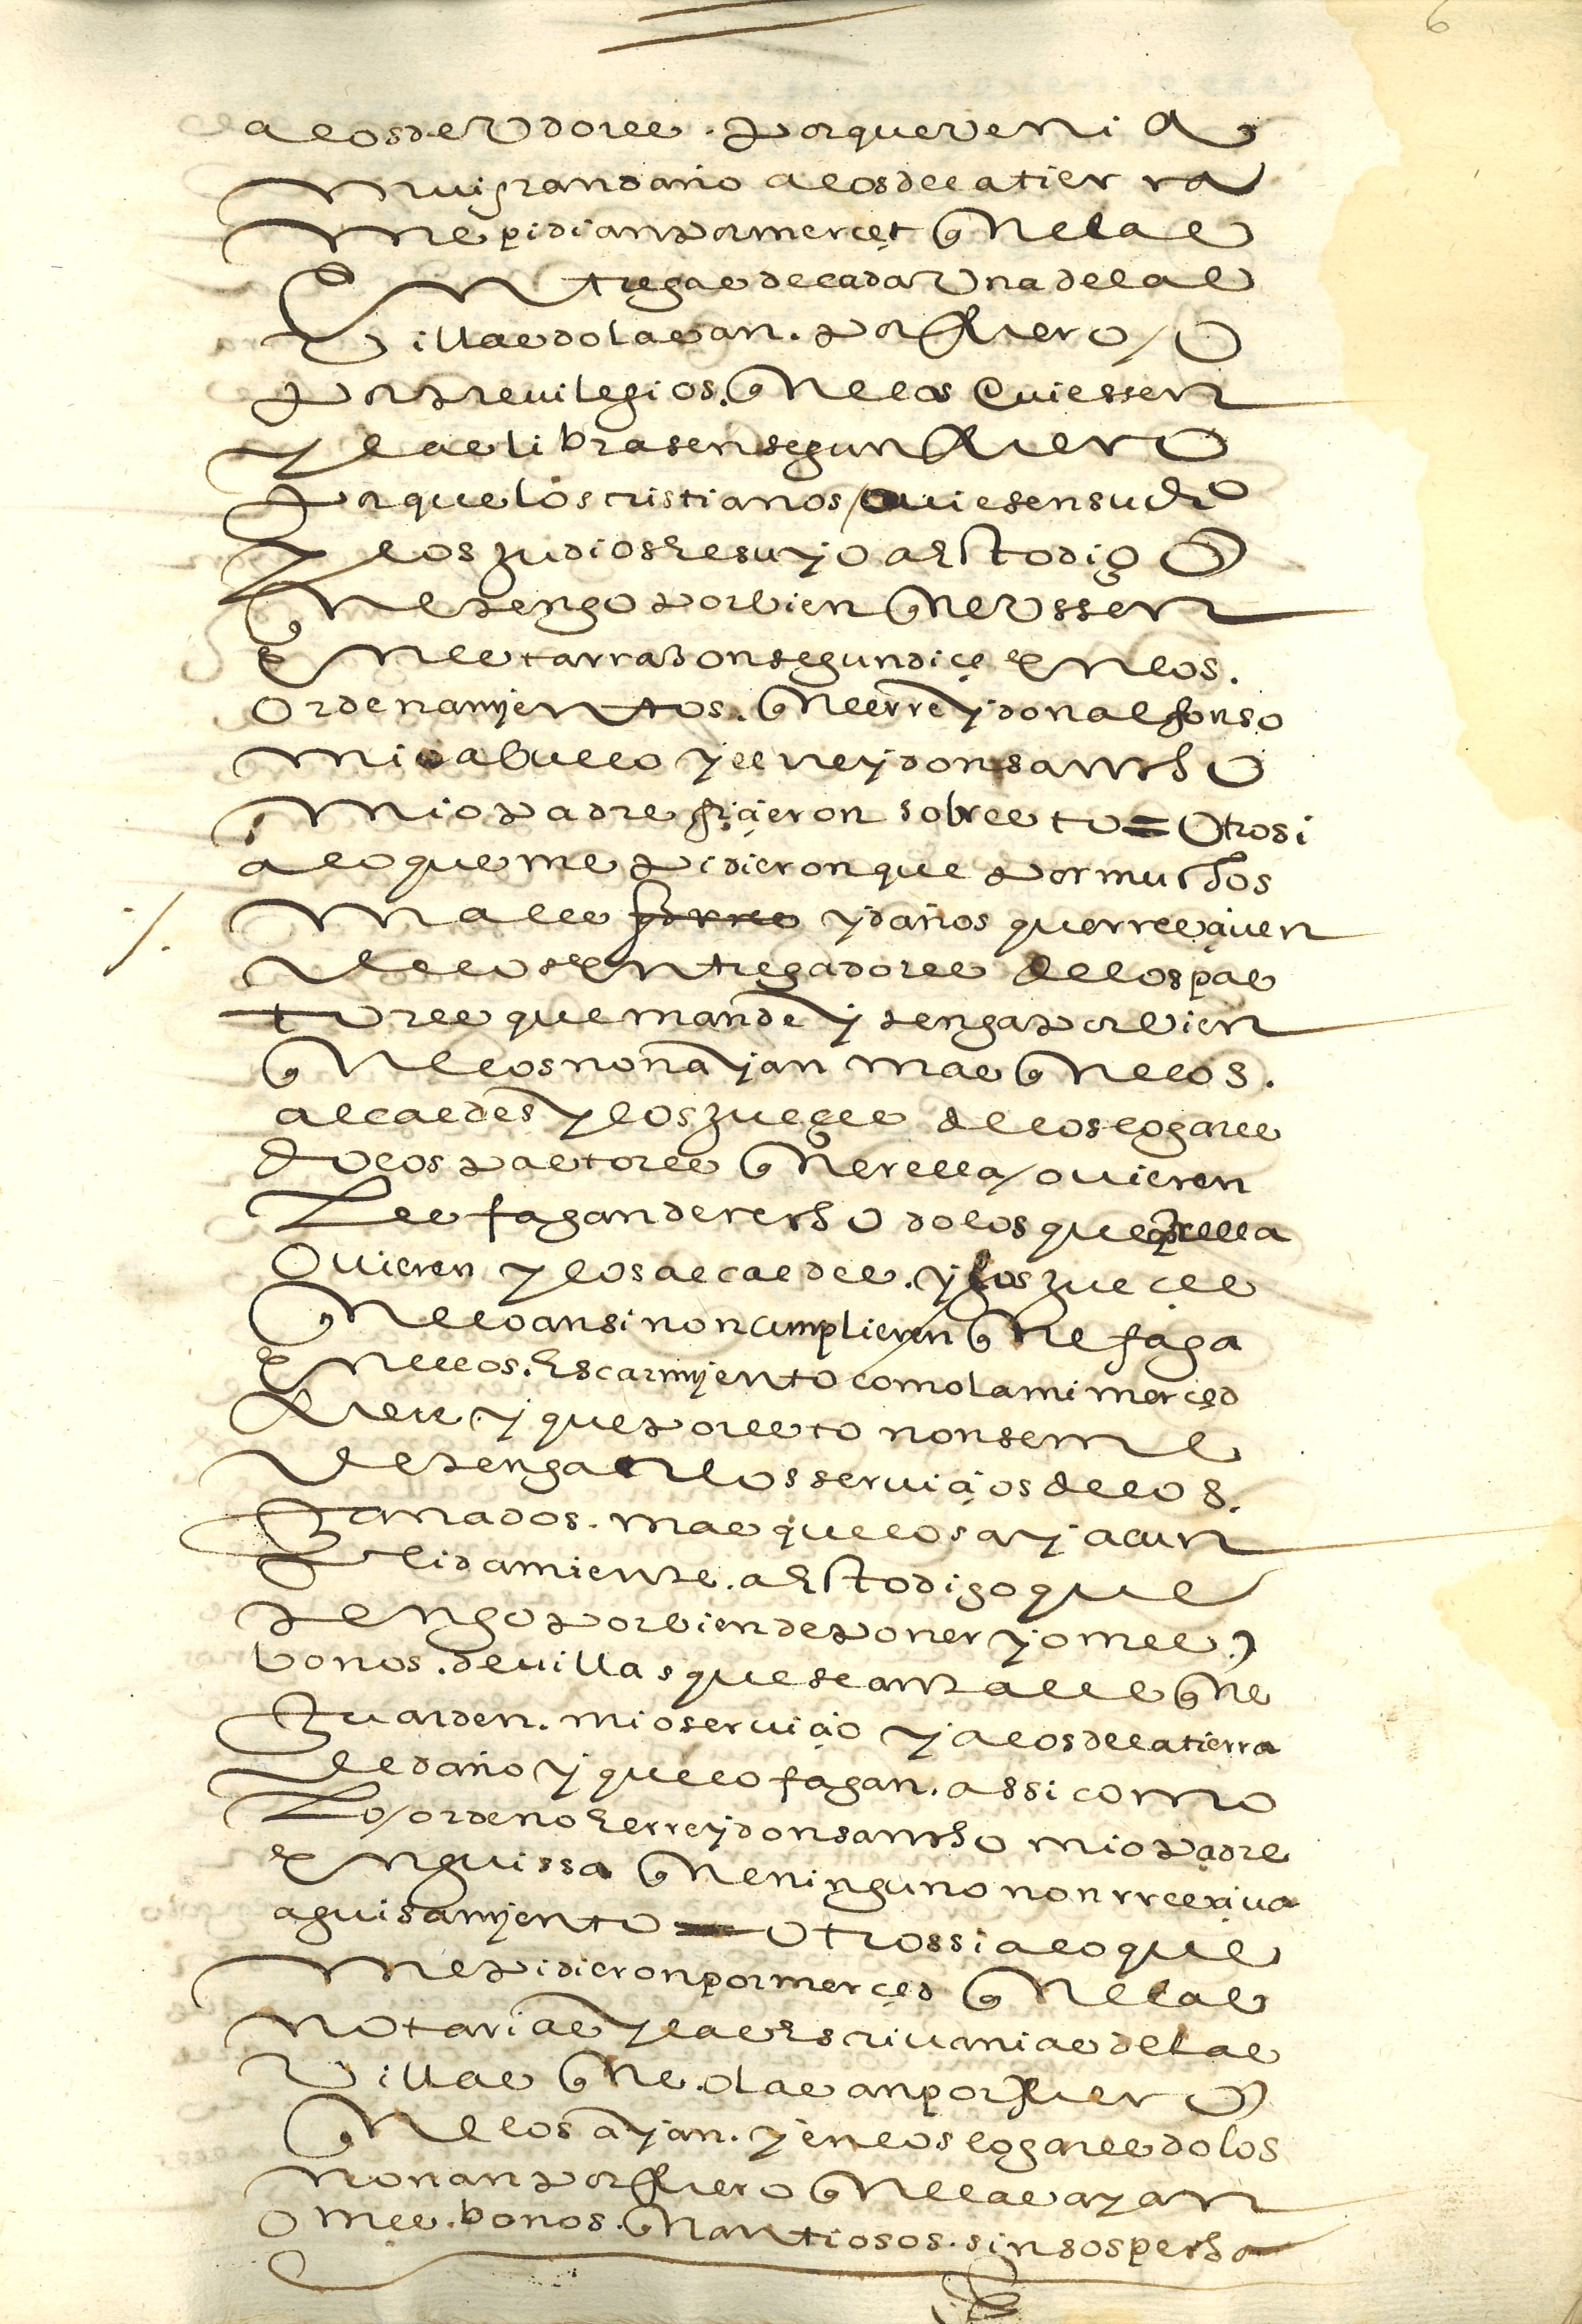 6
a los devdores. porque venia
mui gran daño a los de la tierra
me pidian por mercet que las
entregas de cada una de las
villas do las an. por fuero / o
por previlegios. que los oviessen
y las librasen segun fuero
porque los cristianos / oviesen su dro
y los judios el suyo a esto digo
que tengo por bien que vssen
en esta rrazon segun diçe en los.
ordenamientos. que el rrey don alfonso
mio abuelo y el rrey don sancho
mio padre fiçieron sobre esto = Otrosi
a lo que me pidieron que por muchos
males y daños que rresçiven
de los entregadores de los pas
tores que mande y tenga por bien
que los non ayan mas que los.
alcaldes y los jueçes de los logares
do los pastores querella / ovieren
les fagan derecho do los que querella
ovieren y los alcaldes. y los jueçes
que lo ansi non cumplieren que faga
en ellos. escarmiento como la mi merçed
fuere y que por esto non se me
detenga en los serviçios de los.
ganados. mas que los aya cun
plidamiente. a esto digo que
tengo por bien de poner yo omes
bonos. de villas que sean tales que
guarden. mio serviçio y a los de la tierra
de daño y que lo fagan. assi como
lo / ordeno el rrey don sancho mio padre
en guissa que ninguno non rresçiva
aguisamiento = otrossi a lo que
me pidieron por merçed que las
notarias y las escrivanias de las
villas que. olas an por fuero
que los ayan. y en los logares do los
non an por fuero que las ayan
omes. bonos. quantiosos. sin sospecha